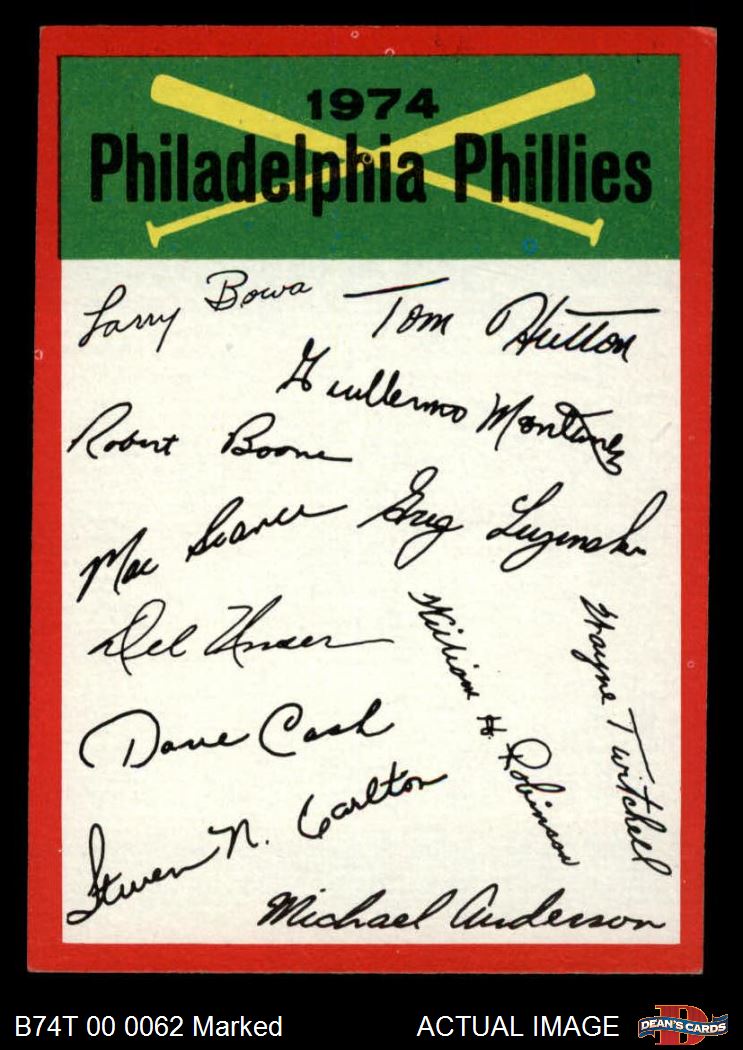 1974
Philadelphia Phillies
Larry Bowa
Tom Hutton
Guillermo Montanez
Robert Boone
Mac Scarce
Greg Luzinski
Del Unser
William H. Robinson
Wayne Twitchell
Dave Cash
Steven N. Carlton
Michael Anderson
B74T 00 0062 Marked
ACTUAL IMAGE
DEAN'S CARDS